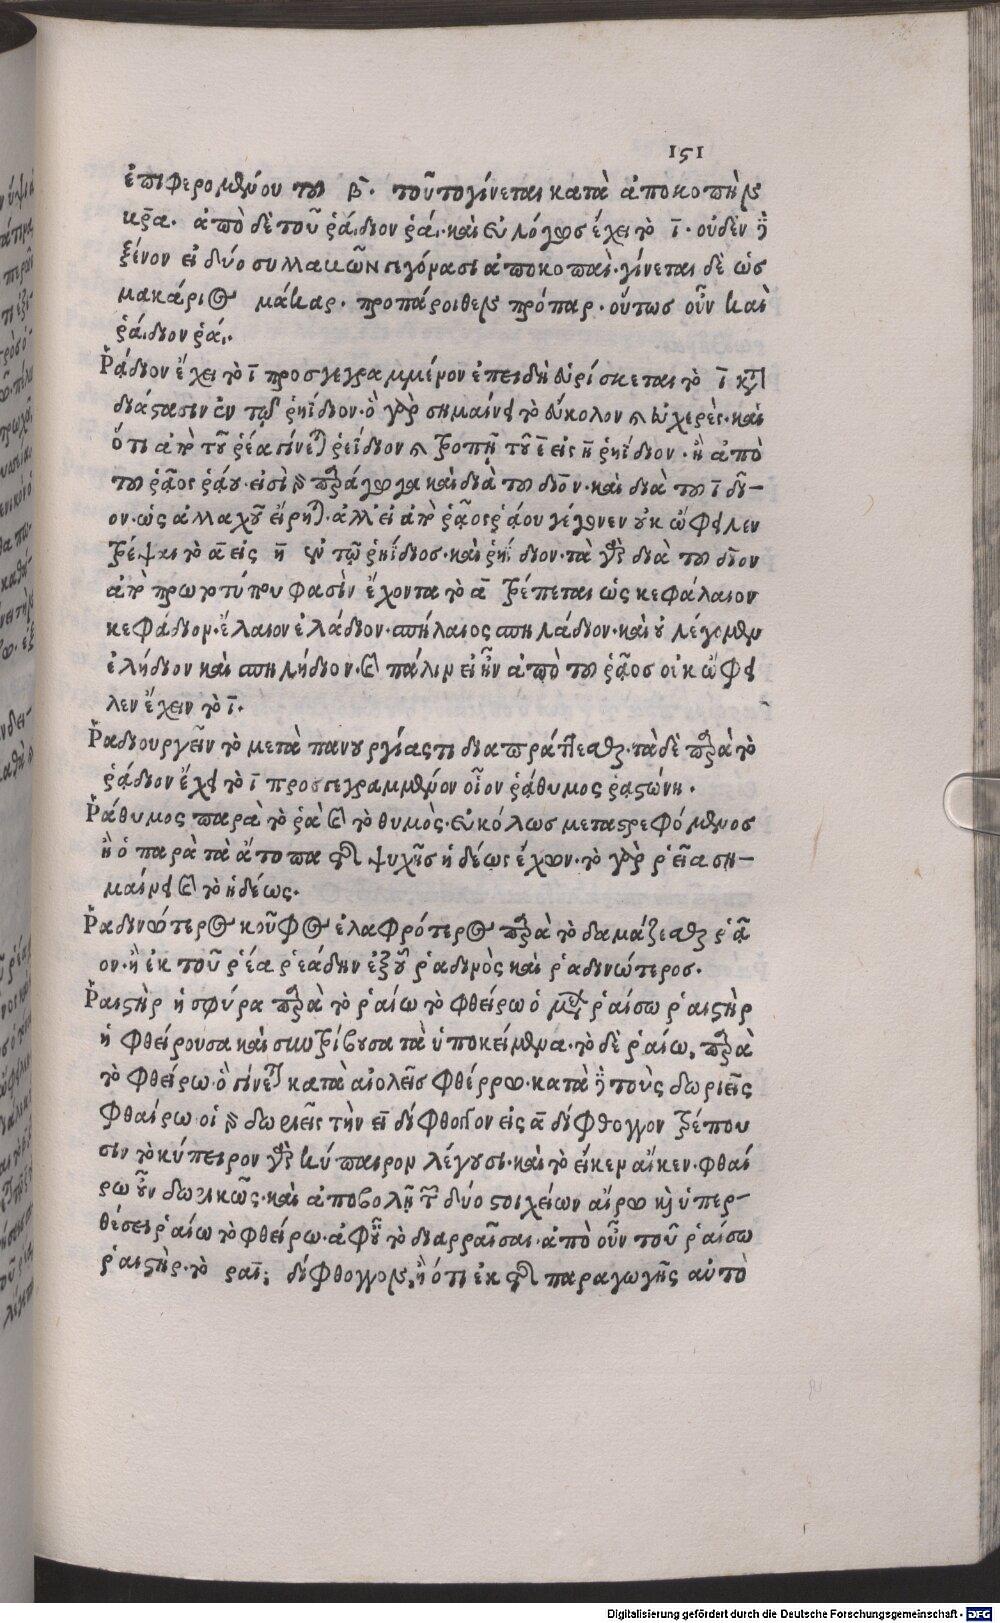 151
ἐπιφερομένου τοῦ β̄. τοῦτο γίνεται κατὰ ἀποκοπὴν
ἀπὸ δὲ τοῦ ῥᾴδιον ῥᾴ. καὶ εὐλόγως ἔχει τὸ ῑ. οὐδὲν
ξένον εἰ δύο συλλαβῶν γεγόνασι ἀποκοπαὶ. γίνεται δὲ ὡς
μακάριος μάκαρ. προπάροιθεν πρόπαρ. οὕτως οὖν καὶ
ῥᾴδιον ῥᾴ.
Ῥᾴδιον ἔχει τὸ ῑ προσγεγραμμένον ἐπειδὴ εὑρίσκεται τὸ ῑ κατὰ
διάστασιν ἐν τῷ ῥηίδιον. ὃ γὰρ σημαίνει τὸ εὔκολον καὶ εὐχερὲς. καὶ
ὅτι ἀπὸ τοῦ ῥέα γίνεται ῥείδιον καὶ τροπῇ τοῦ ε̄ εἰς η̄ ῥηίδιον. ἢ ἀπὸ
τοῦ ῥᾷος ῥᾴου. εἰσὶ δὲ παράγωγα καὶ διὰ τοῦ διον. καὶ διὰ τοῦ ῑ δι-
ον. ὡς ἀλλαχοῦ εἴρηται. ἀλλ' εἰ ἀπὸ ῥᾷος ῥᾴου γέγονεν οὐκ ὤφειλεν
τρέψαι τὸ ᾱ εἰς η̄ ἐν τῷ ῥηίδιος. καὶ ῥηίδιον. τὰ γὰρ διὰ τοῦ διον
ἀπὸ πρωτοτύπου φασὶν ἔχοντα τὸ ᾱ τρέπεται ὡς κεφάλαιον
κεφάδιον. ἔλαιον ἐλάδιον. σπήλαιος σπηλάδιον. καὶ οὐ λέγομεν
ἐλήδιον καὶ σπηλήδιον. καὶ πάλιν εἰ ἦν ἀπὸ τοῦ ῥᾷος οὐκ ὤφει
λεν ἔχειν τὸ ῑ.
Ῥαδιουργεῖν τὸ μετὰ πανουργίας τι διαπράττεσθαι. τὰ δὲ παρὰ τὸ
ῥᾴδιον ἔχει τὸ ῑ προσγεγραμμένον οἷον ῥᾴθυμος ῥᾳστώνη.
Ῥάθυμος παρὰ τὸ ῥὰ καὶ τὸ θυμὸς. εὐκόλως μεταστρεφόμενος
ἢ ὁ παρὰ τὰ ἄτοπα τῆς ψυχῆς ἡδέως ἔχων. τὸ γὰρ ῥεῖα ση-
μαίνει καὶ τὸ ἡδέως.
Ῥαδινώτερος κοῦφος ἐλαφρότερος παρὰ τὸ δαμάζεσθαι ῥᾷ
ον. ἢ ἐκ τοῦ ῥέα ῥεάδην ἐξ οὗ ῥαδινὸς καὶ ῥαδινώτερος.
Ῥαιστὴρ ἡ σφύρα παρὰ τὸ ῥαίω τὸ φθείρω ὁ μέλλων ῥαίσω ῥαιστὴρ
ἡ φθείρουσα καὶ συντρίβουσα τὰ ὑποκείμενα. τὸ δὲ ῥαίω, παρὰ
τὸ φθείρω. ὃ γίνεται κατὰ αἰολεῖς φθέρρω. κατὰ δὲ τοὺς δωριεῖς
φθαίρω. οἱ δὲ δωριεῖς τὴν ει δίφθογγον εἰς αι δίφθογγον τρέπου
σιν τὸ κύπειρον γὰρ κύπαιρον λέγουσι. καὶ τὸ εἴκεν αἴκεν. φθαί
ρω οὖν δωρικῶς. καὶ ἀποβολῇ τῶν δύο στοιχείων αἴρω καὶ ὑπερ-
θέσει ῥαίω τὸ φθείρω. ἀφ' οὗ τὸ διαρραῖσαι. ἀπὸ οὖν τοῦ ῥαίσω
ῥαιστὴρ. τὸ ραῑ; δίφθογγον, ἢ ὅτι ἐκ τῆς παραγωγῆς αὐτὸ
Digitalisierung gefördert durch die Deutsche Forschungsgemeinschaft - DFG